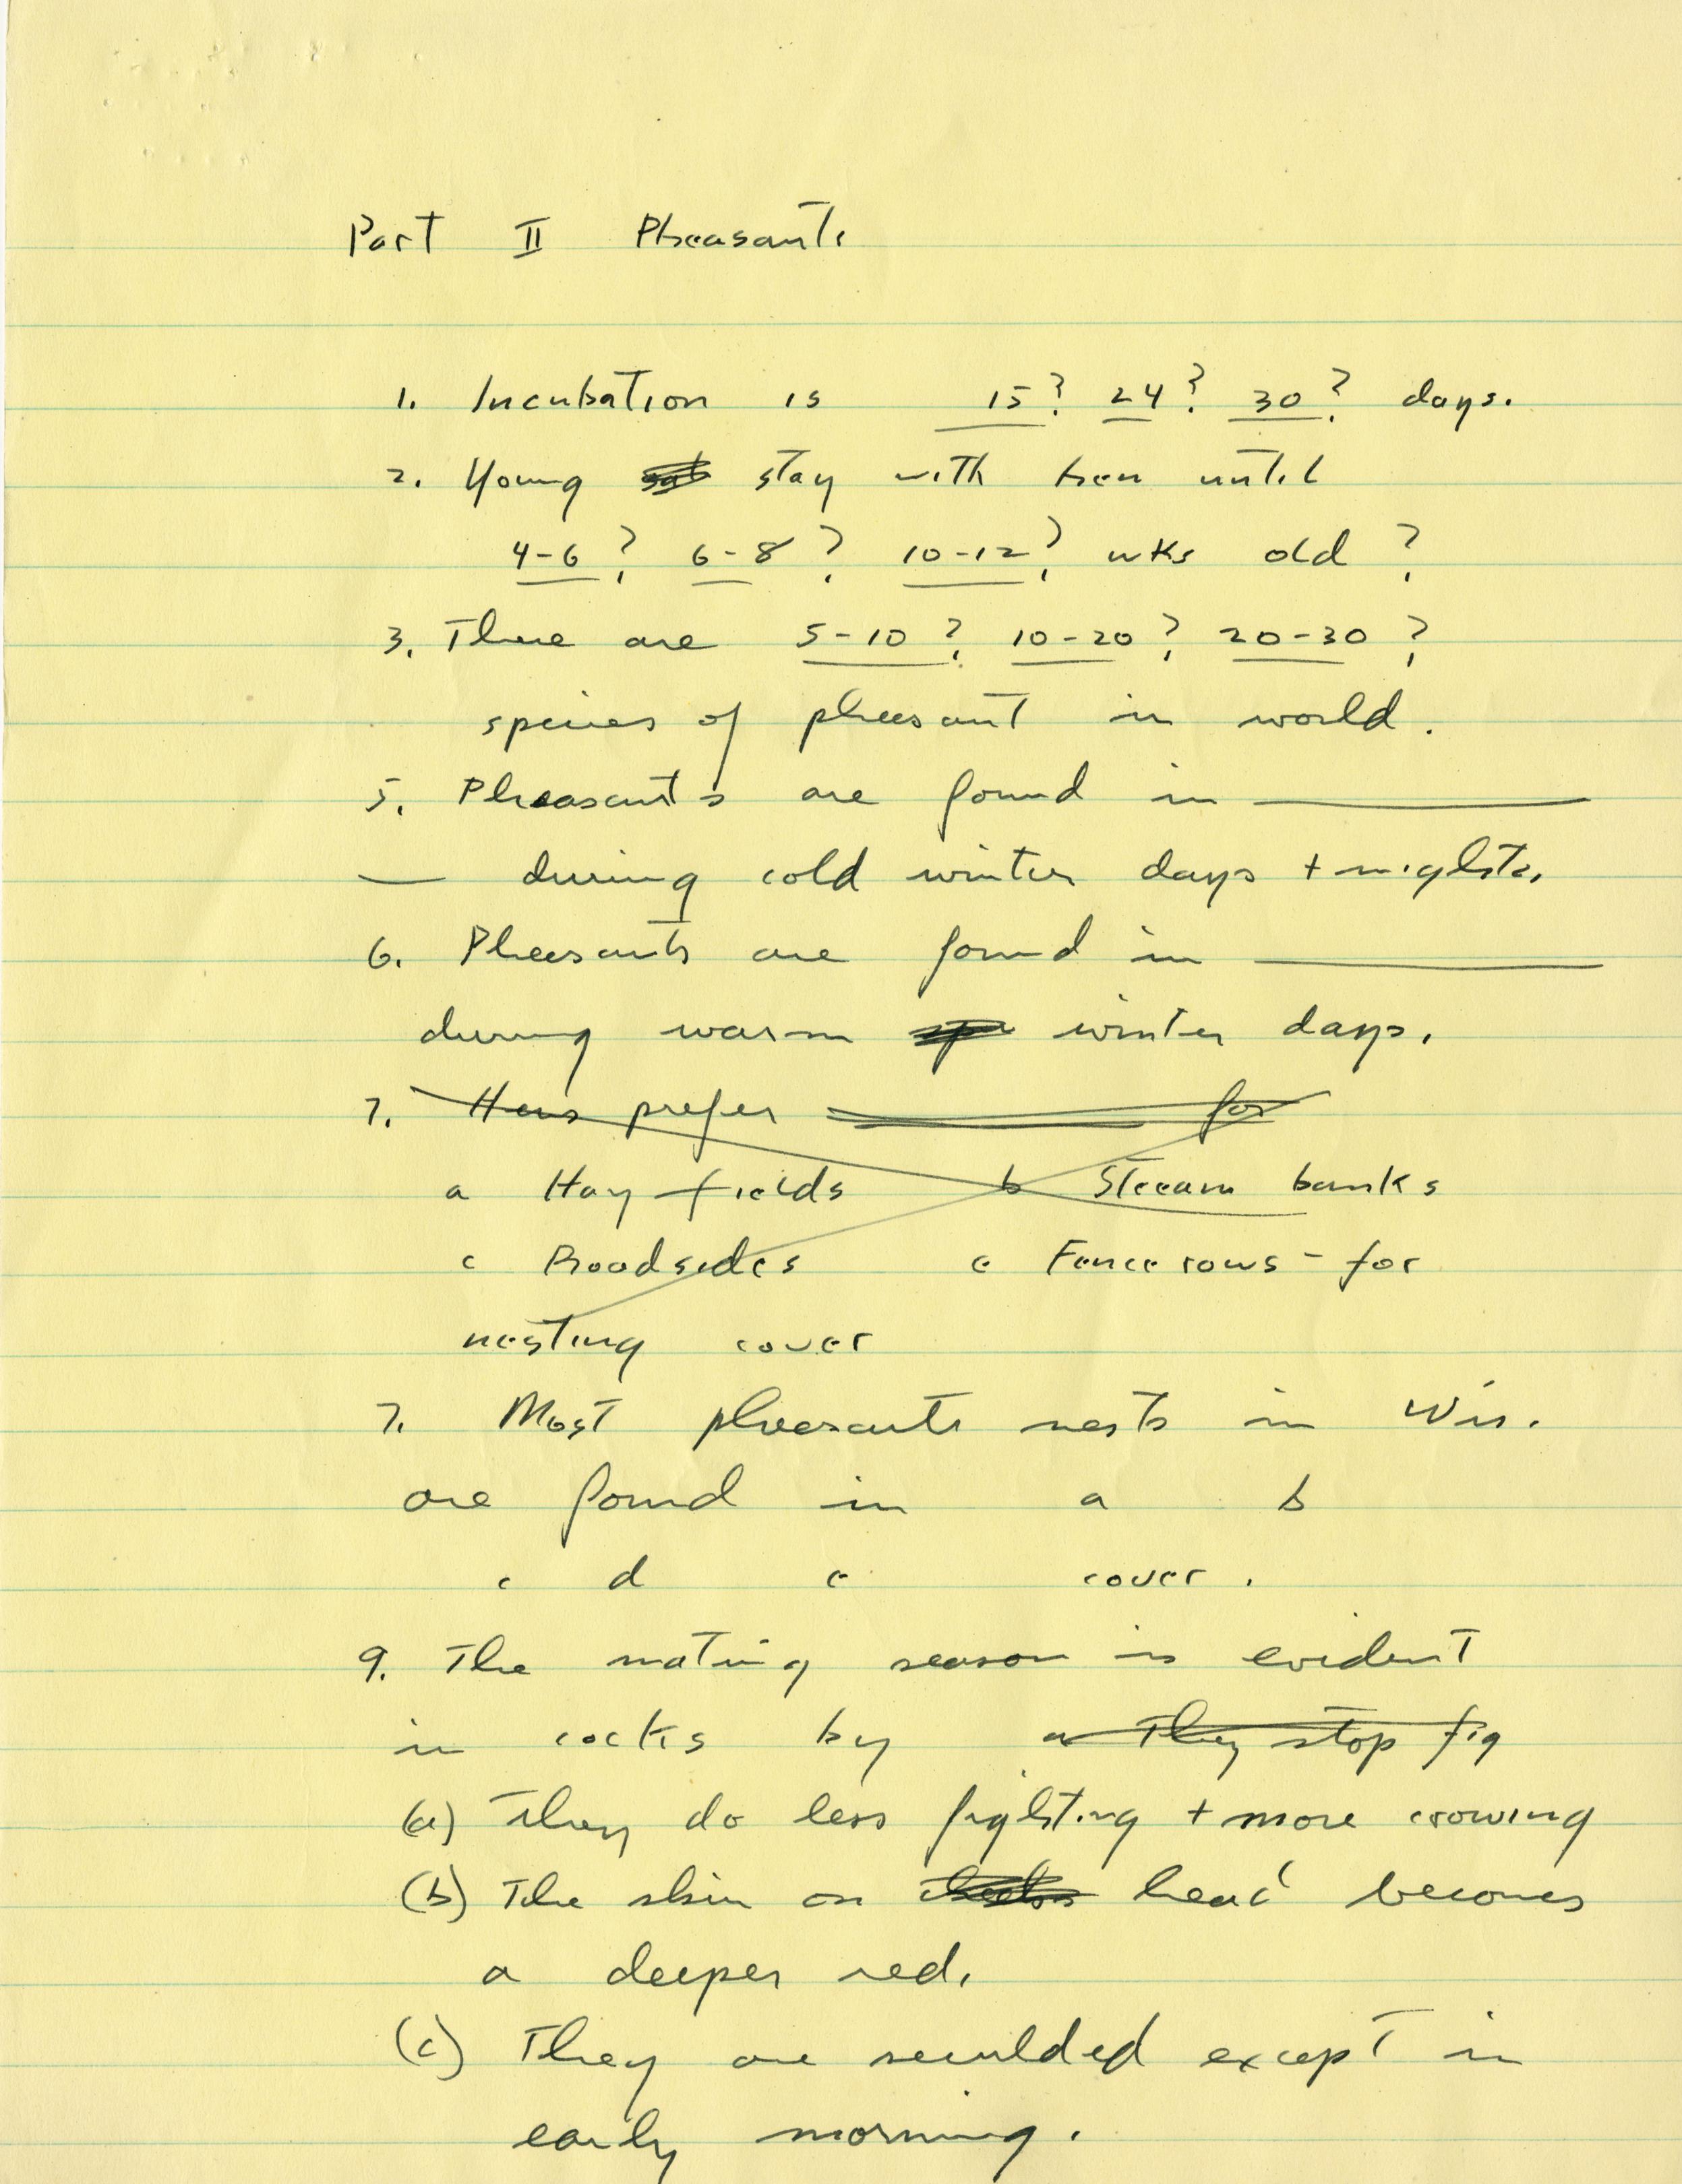 Part II Pheasants
1. Incubation is 15? 24? 30? days.
2. Young stay with hen until
4-6? 6-8? 10-12? wks old?
3. There are 5-10? 10-20? 20-30?
species of pheasant in world.
5. Pheasants are found in ______
__ during cold winter days + nights.
6. Pheasants are found in ______
during warm winter days.
7. Hens prefer ______ for
a Hay fields b Stream banks
c Roadsides e Fence rows - for
nesting cover
7. Most pheasants nests in Wis.
are found in a b
c d e cover.
9. The mating season is evident
in cocks by a They stop fig
(a) They do less fighting + more crowing
(b) The skin on head becomes
a deeper red.
(c) They are secluded except in
early morning.